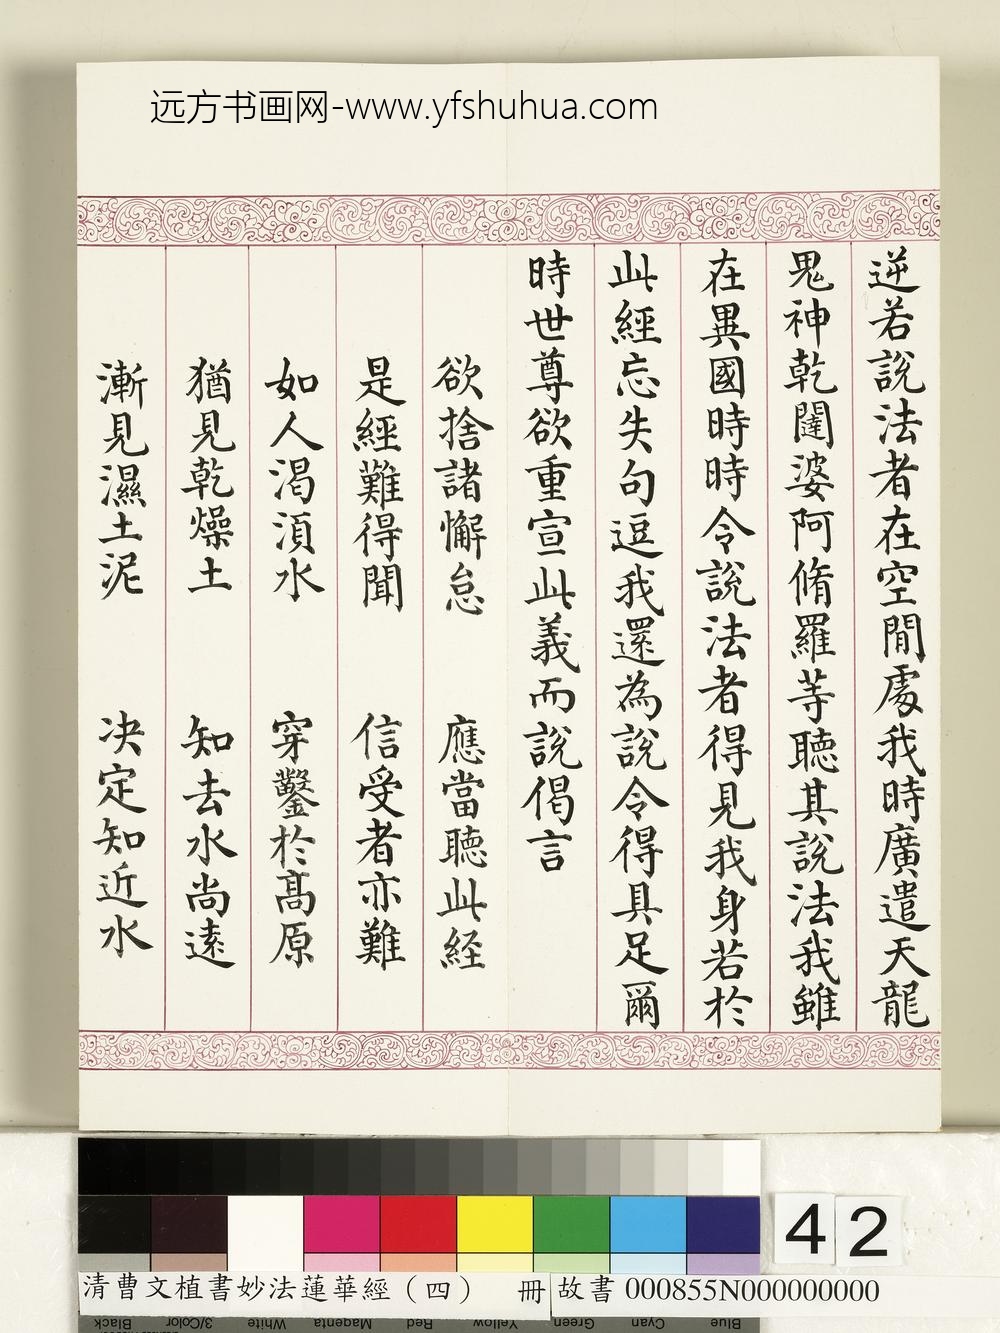 远方书画网-www.yfshuhua.com
逆若說法者在空閒處我時廣遣天龍
鬼神乾闥婆阿脩羅等聽其說法我雖
在異國時時令說法者得見我身若於
此經忘失句逗我還為說令得具足爾
時世尊欲重宣此義而說偈言
欲捨諸懈怠 應當聽此経
是經難得聞 信受者亦難
如人渴須水 穿鑿於髙原
猶見乾燥土 知去水尚遠
漸見濕土泥 决定知近水
42
清曹文植書妙法蓮華經（四） 冊 故書 000855N000000000
Black 3/Color White Magenta Red Yellow Green Cyan Blue